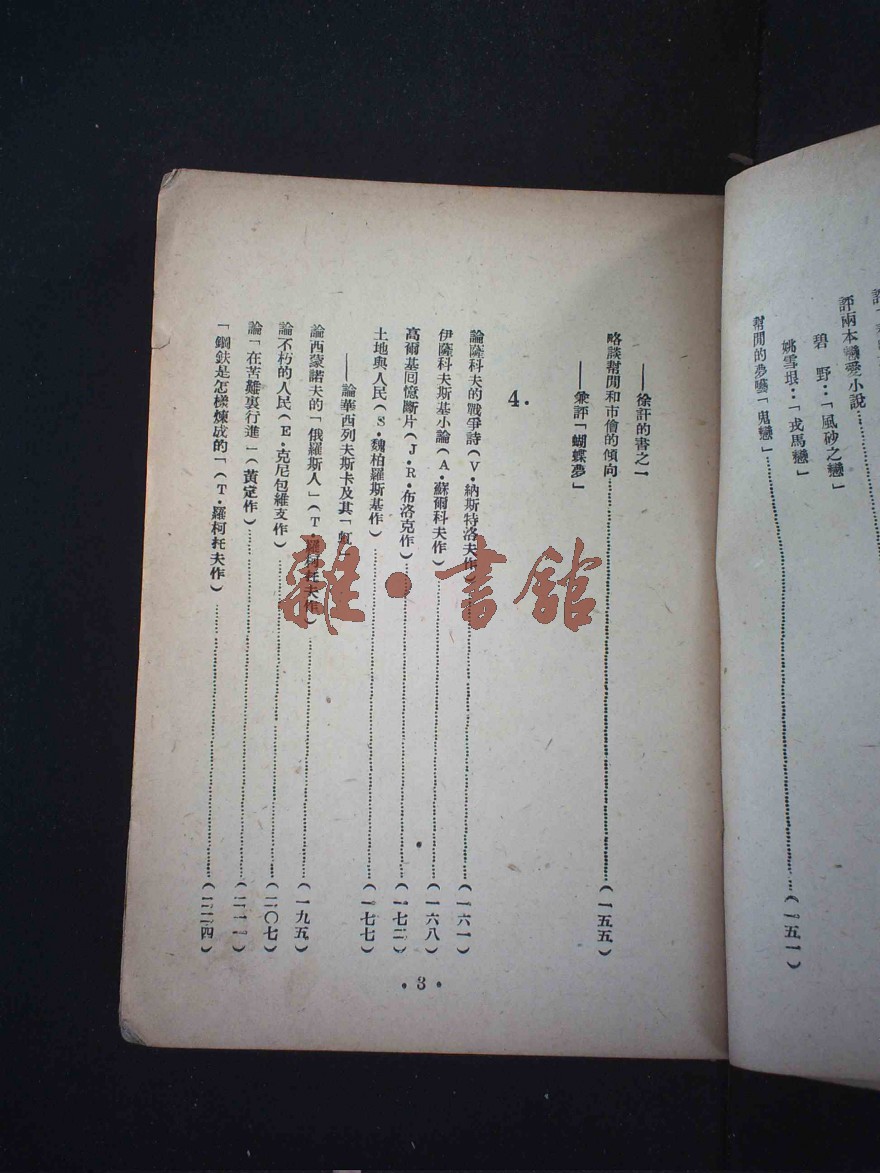 評兩本戀愛小說……
碧野：「風砂之戀」
姚雪垠：「戎馬戀」
幫閒的夢囈「鬼戀」……(一五一)
——徐訏的書之一
略談幫閒和市儈的傾向……(一五五)
——兼評「蝴蝶夢」
4.
論薩科夫的戰爭詩(V·納斯特洛夫作)……(一六一)
伊薩科夫斯基小論(A·蘇爾科夫作)……(一六八)
高爾基回憶斷片(J·R·布洛克作)……(一七二)
土地與人民(S·魏柏羅斯基作)……(一七七)
——論華西列夫斯卡及其「虹」
論西蒙諾夫的「俄羅斯人」(T·羅柯托夫作)……(一九五)
論不朽的人民(E·克尼包維支作)……(二〇七)
論「在苦難裏行進」(黃定作)……(二一一)
「鋼鉄是怎樣煉成的「(T·羅柯托夫作)……(二二四)
·3·
雜·書館